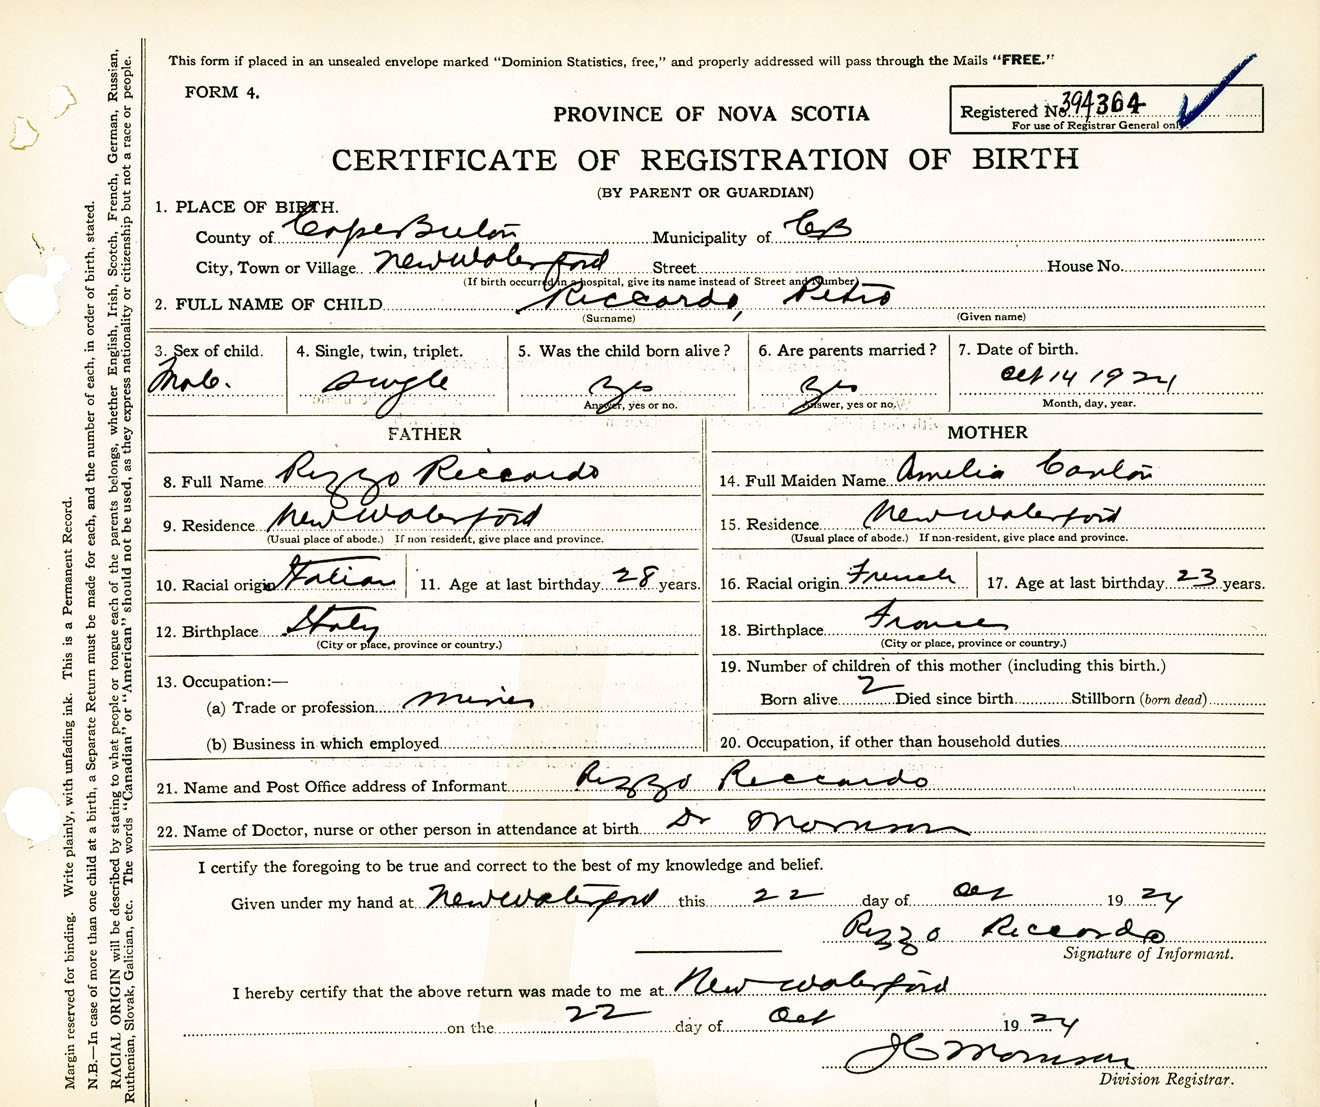 This form if placed in an unsealed envelope marked "Dominion Statistics, free," and properly addressed will pass through the Mails "FREE."
FORM 4.
PROVINCE OF NOVA SCOTIA
Registered No. 394364
For use of Registrar General only.
CERTIFICATE OF REGISTRATION OF BIRTH
(BY PARENT OR GUARDIAN)
1. PLACE OF BIRTH.
County of Cape Breton Municipality of CB
City, Town or Village New Waterford Street House No.
(If birth occurred in a hospital, give its name instead of Street and Number)
2. FULL NAME OF CHILD Riccardo, Petro
(Surname) (Given name)
3. Sex of child. 4. Single, twin, triplet. 5. Was the child born alive? 6. Are parents married? 7. Date of birth.
Male. Single Yes Yes Oct 14 1924
Answer, yes or no. Answer, yes or no. Month, day, year.
FATHER
8. Full Name Rizzo Riccardo
9. Residence New Waterford
(Usual place of abode.) If non resident, give place and province.
10. Racial origin Italian 11. Age at last birthday 28 years.
12. Birthplace Italy
(City or place, province or country.)
13. Occupation:—
(a) Trade or profession miner
(b) Business in which employed
MOTHER
14. Full Maiden Name Amelia
15. Residence New Waterford
(Usual place of abode.) If non-resident, give place and province.
16. Racial origin French 17. Age at last birthday 23 years.
18. Birthplace France
(City or place, province or country.)
19. Number of children of this mother (including this birth.)
Born alive 2 Died since birth Stillborn (born dead)
20. Occupation, if other than household duties
21. Name and Post Office address of Informant Rizzo Riccardo
22. Name of Doctor, nurse or other person in attendance at birth Dr Morrison
I certify the foregoing to be true and correct to the best of my knowledge and belief.
Given under my hand at New Waterford this 22 day of Oct 1924
Rizzo Riccardo
Signature of Informant.
I hereby certify that the above return was made to me at New Waterford
on the 22 day of Oct 1924
J C Morrison
Division Registrar.
Margin reserved for binding. Write plainly, with unfading ink. This is a Permanent Record.
N.B.—In case of more than one child at a birth, a Separate Return must be made for each, and the number of each, in order of birth, stated.
RACIAL ORIGIN will be described by stating to what people or tongue each of the parents belongs, whether English, Irish, Scotch, French, German, Russian,
Ruthenian, Slovak, Galician, etc. The words "Canadian" or "American" should not be used, as they express nationality or citizenship but not a race or people.